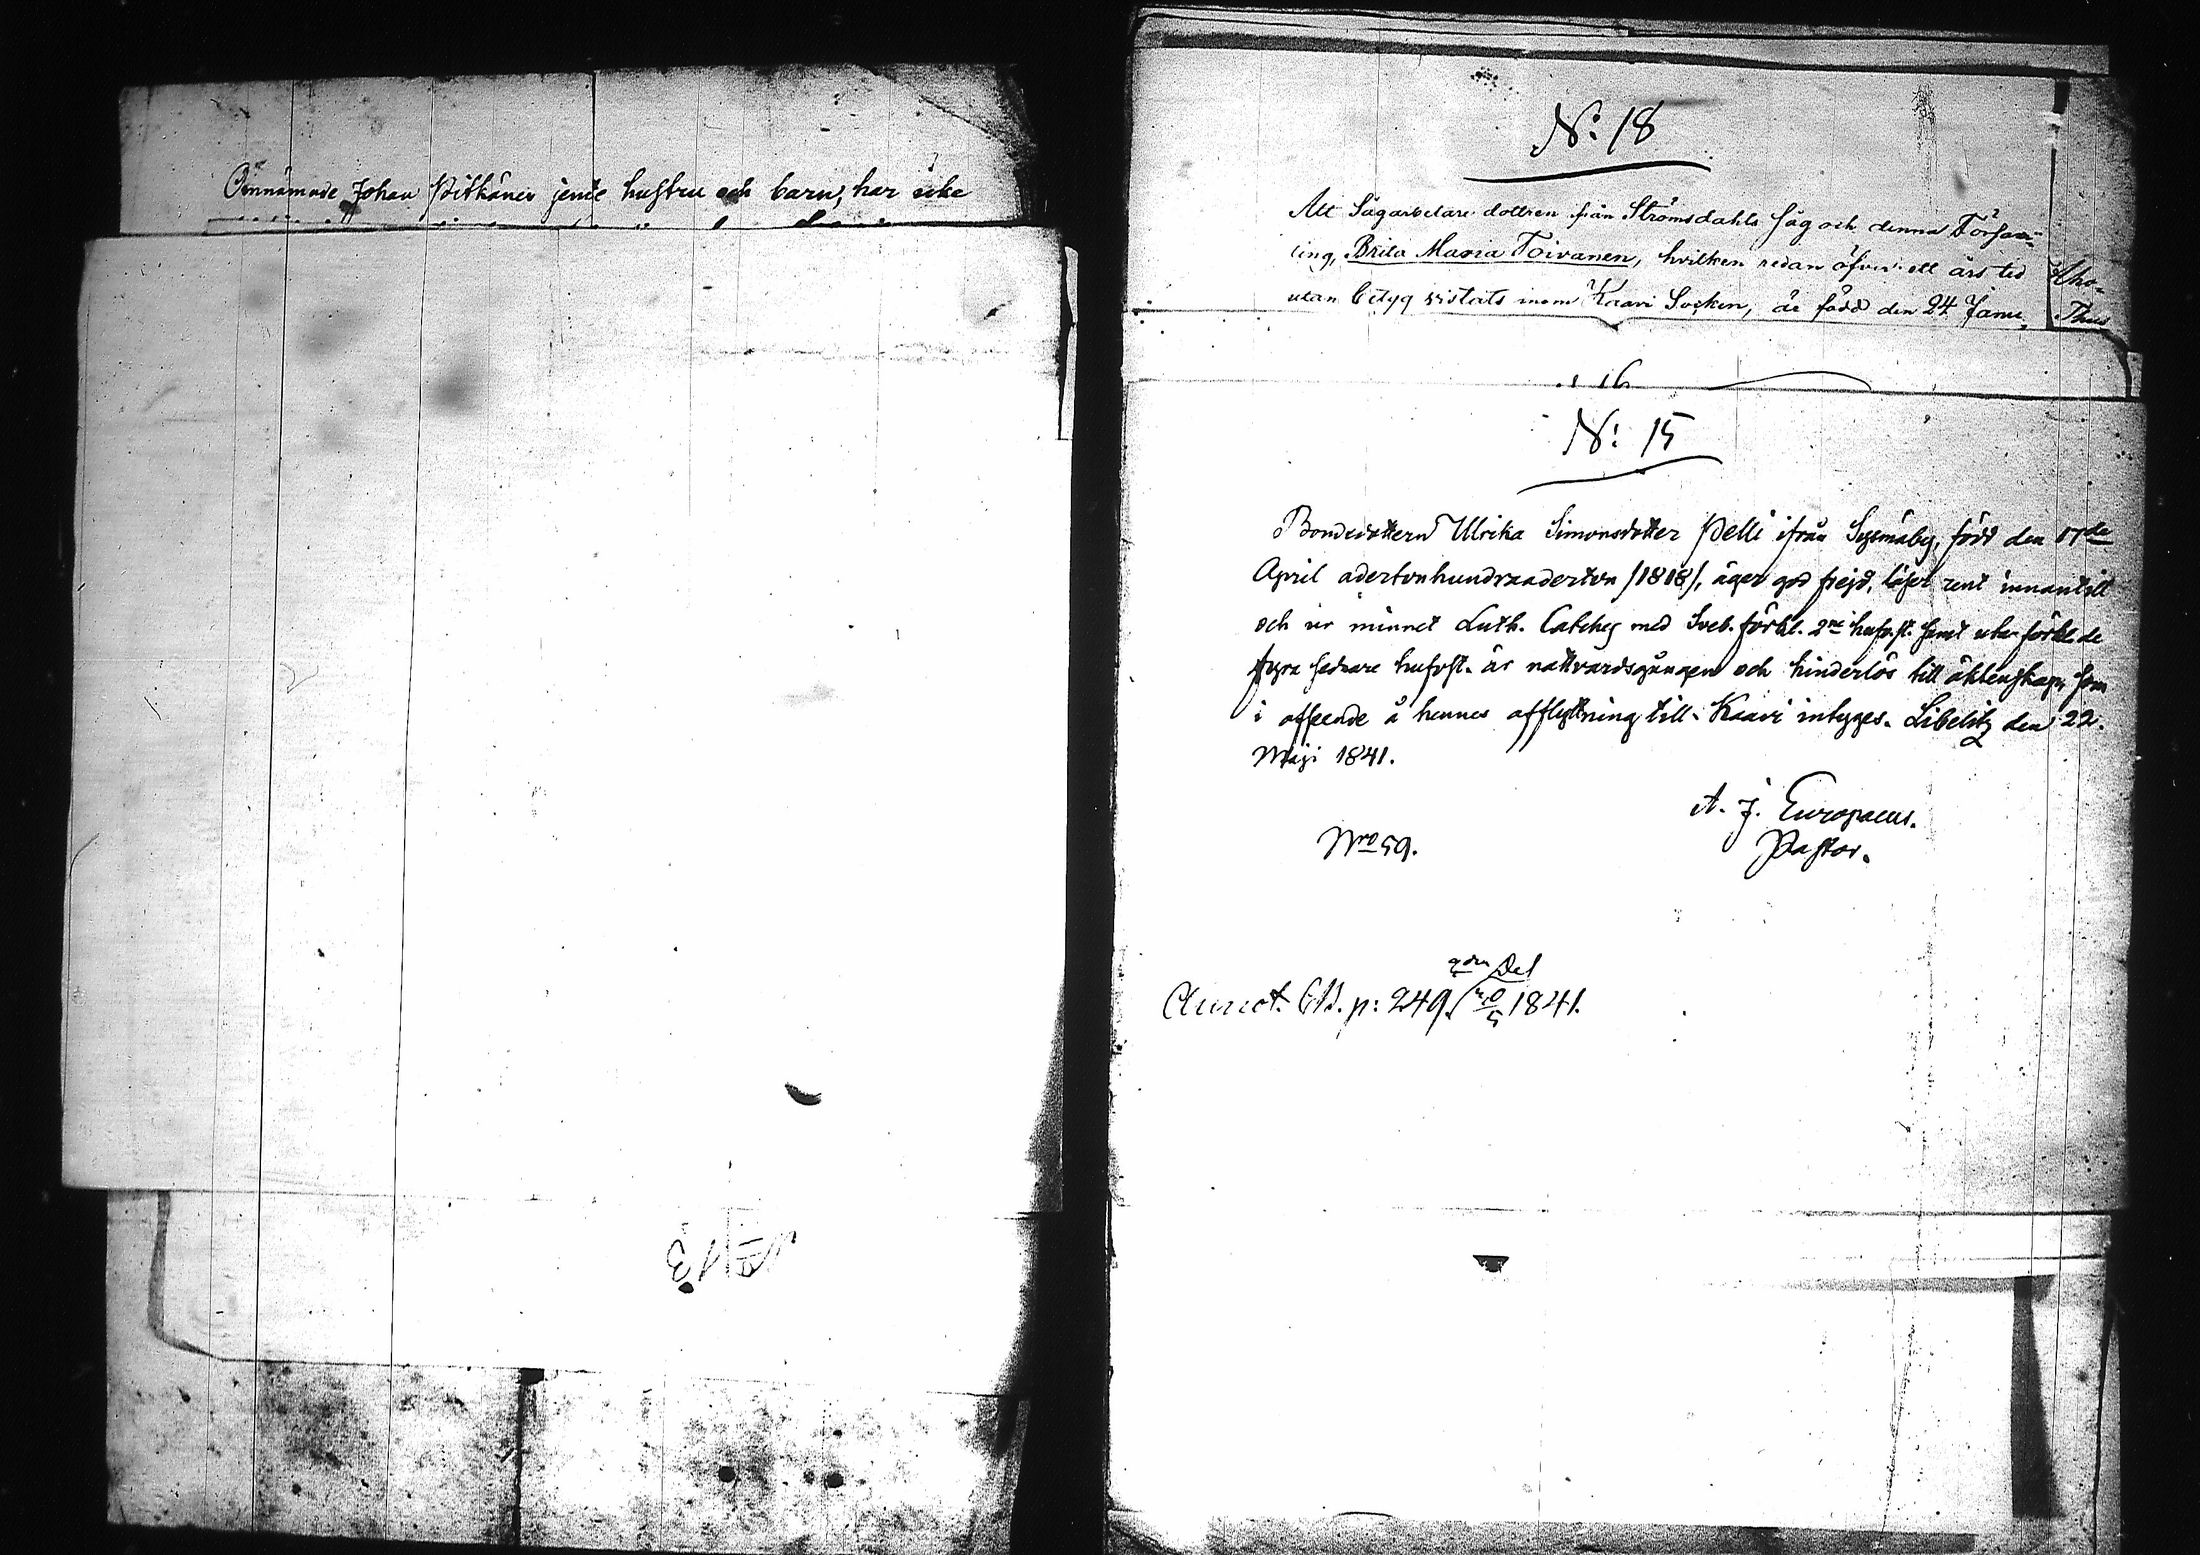 Omnämnde Johan Pitkänen jemte hustru och barn, har icke
N: 18
Att Sågarbetare dottren från Strömsdahls såg och denna Försam-
ling, Brita Maria Toivanen, hvilken redan öfver ett års tid
utan betyg vistats inom Kaavi Socken, är född den 24 Janu
16
N: 15
Bondedottern Ulrika Simonsdotter Pelli ifrån Sysmäby, född den 17de
April adertonhundraaderton /1818/, äger god frejd, läser rent innantill
och ur minnet Luth. Cateches med Sveb. förkl. 2ne hufvst. samt utan förkl. de
fyra sednare hufvst. är nattvardsgången och hinderlös till äktenskap, som
i afseende å hennes afflyttning till Kaavi intygas. Libelitz den 22.
Maji 1841.
A. J. Europaeus.
Pastor.
Nro 59.
Annot. p: 249. 1841.